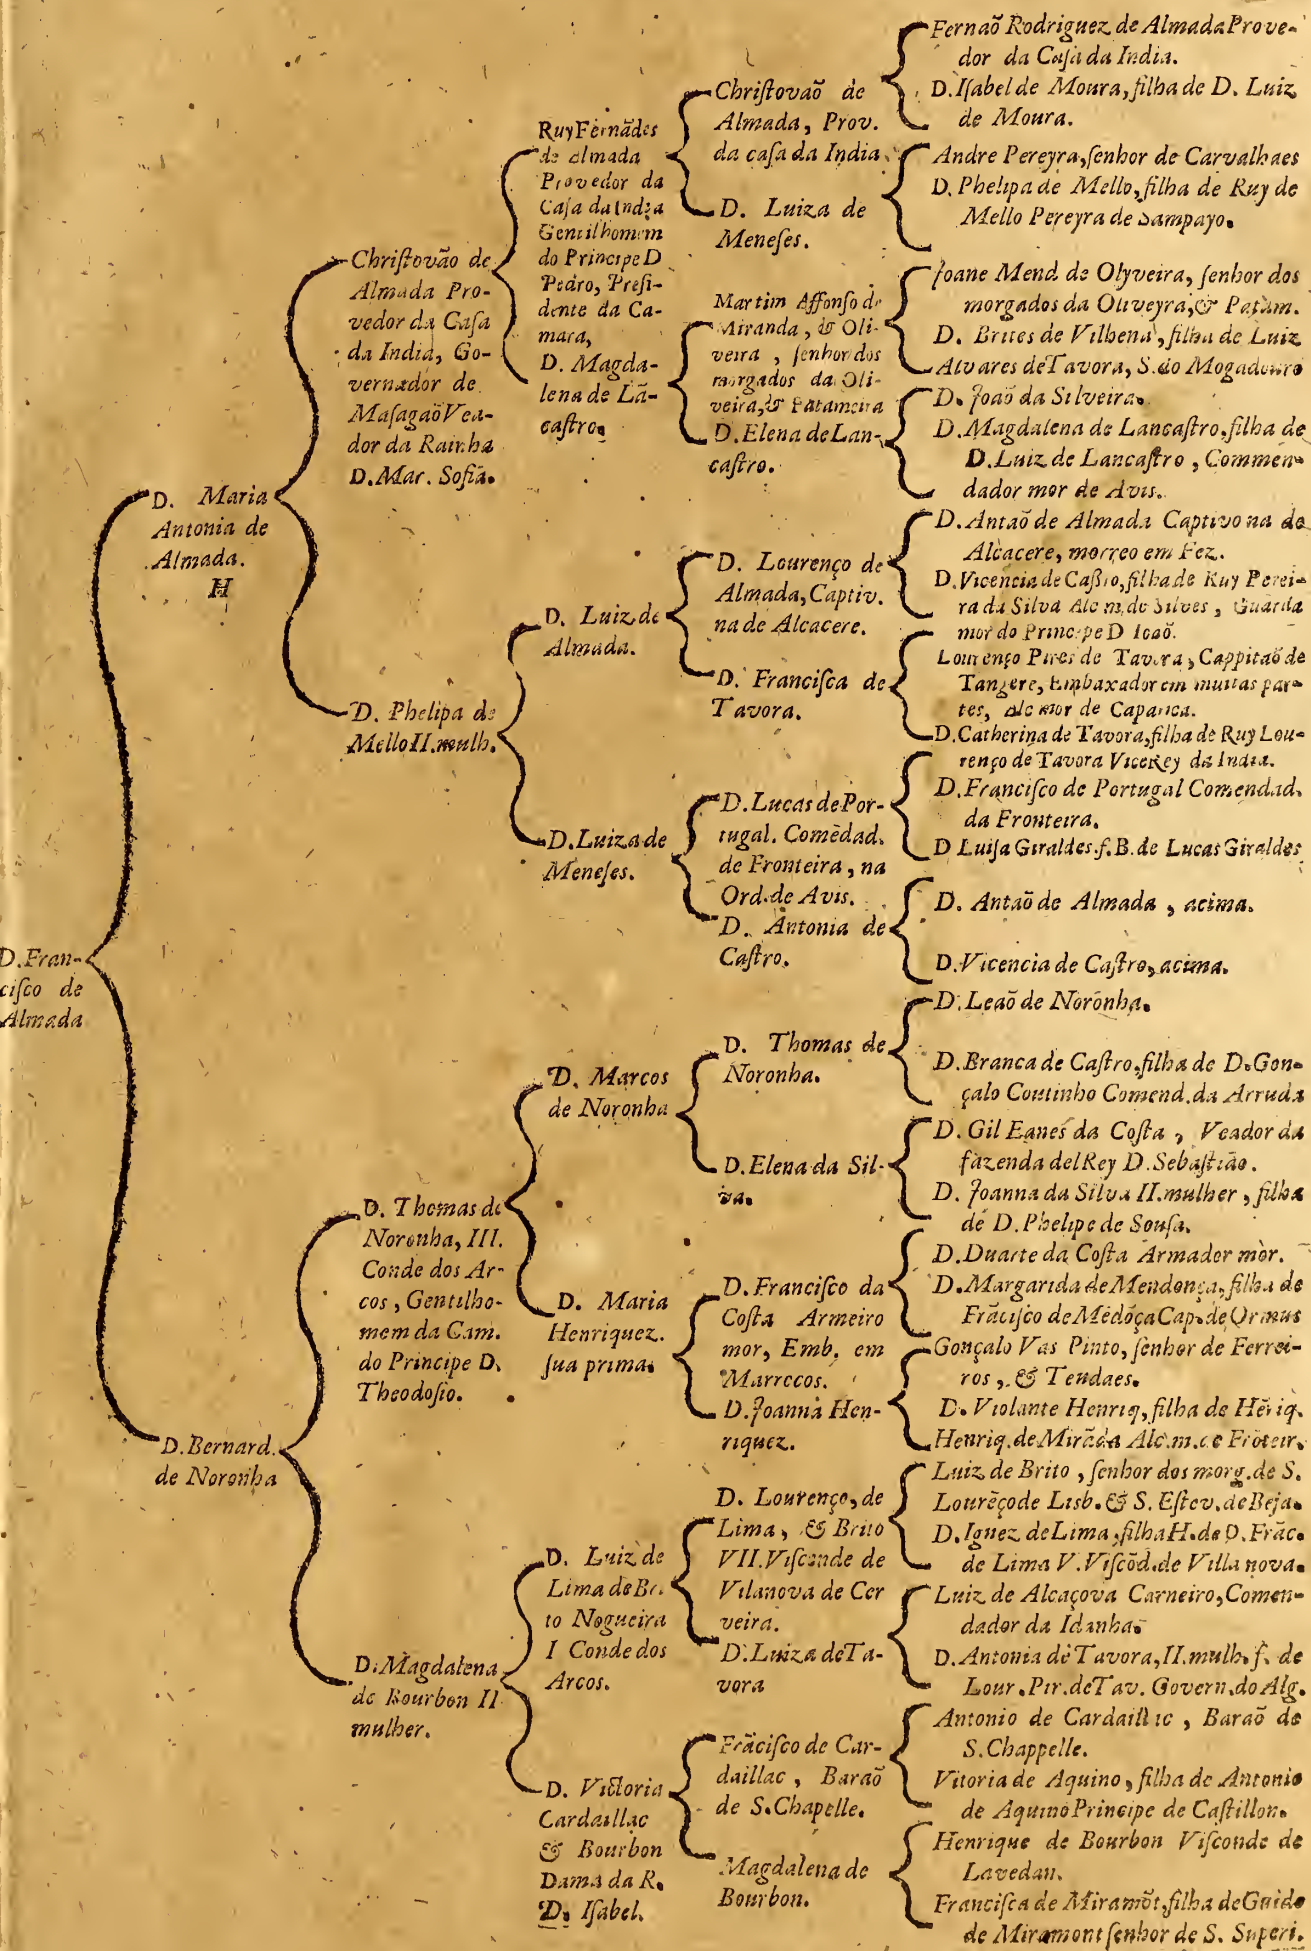 D. Fran-
cisco de
Almada
D. Maria
Antonia de
Almada.
H
D. Bernard.
de Noronha
Christovão de
Almada Pro-
vedor da Casa
da India, Go-
vernador de
Masagaõ Vea-
dor da Rainha
D. Mar. Sofia.
D. Phelipa de
Mello II. mulh.
D. Thomas de
Noronha, III.
Conde dos Ar-
cos, Gentilho-
mem da Cam.
do Principe D.
Theodosio.
D. Magdalena
de Bourbon II
mulher.
Ruy Fernãdes
de Almada
Provedor da
Casa da India
Gentilhomem
do Principe D
Pedro, Presi-
dente da Ca-
mara,
D. Magda-
lena de Lã-
castro.
D. Luiz de
Almada.
D. Luiza de
Meneses.
D. Marcos
de Noronha
D. Maria
Henriquez.
sua prima.
D. Luiz de
Lima de Bri
to Nogueira
I Conde dos
Arcos.
D. Victoria
Cardaillac
& Bourbon
Dama da R.
D. Isabel.
Christovaõ de
Almada, Prov.
da casa da India.
D. Luiza de
Meneses.
Martim Affonso de
Miranda, & Oli-
veira, senhor dos
morgados da Oli-
veira, & Patameira
D. Elena de Lan-
castro.
D. Lourenço de
Almada, Captiv.
na de Alcacere.
D. Francisca de
Tavora.
D. Lucas de Por-
tugal. Comẽdad.
de Fronteira, na
Ord. de Avis.
D. Antonia de
Castro.
D. Thomas de
Noronha.
D. Elena da Sil-
va.
D. Francisco da
Costa Armeiro
mor, Emb. em
Marrocos.
D. Joanna Hen-
riquez.
D. Lourenço, de
Lima, & Brito
VII. Visconde de
Vilanova de Cer
veira.
D. Luiza de Ta-
vora
Frãcisco de Car-
daillac, Baraõ
de S. Chapelle.
Magdalena de
Bourbon.
Fernaõ Rodriguez de Almada Prove-
dor da Casa da India.
D. Isabel de Moura, filha de D. Luiz
de Moura.
Andre Pereyra, senhor de Carvalhaes
D. Phelipa de Mello, filha de Ruy de
Mello Pereyra de Sampayo.
Joane Mend. de Olyveira, senhor dos
morgados da Oliveyra, & Patam.
D. Brites de Vilhena, filha de Luiz
Alvares de Tavora, S. do Mogadouro
D. Joaõ da Silveira.
D. Magdalena de Lancastro, filha de
D. Luiz de Lancastro, Commen-
dador mor de Avis.
D. Antaõ de Almada Captivo na de
Alcacere, morreo em Fez.
D. Vicencia de Castro, filha de Ruy Perei-
ra da Silva Alc. m. de Silves, Guarda
mor do Principe D Ioaõ.
Lourenço Pires de Tavora, Cappitaõ de
Tangere, Embaxador em muitas par-
tes, Alc mor de Caparica.
D. Catherina de Tavora, filha de Ruy Lou-
renço de Tavora ViceRey da India.
D. Francisco de Portugal Comendad.
da Fronteira.
D Luisa Giraldes. f. B. de Lucas Giraldes
D. Antaõ de Almada, acima.
D. Vicencia de Castro, acima.
D. Leaõ de Noronha.
D. Branca de Castro, filha de D. Gon-
çalo Coutinho Comend. da Arruda
D. Gil Eanes da Costa, Veador da
fazenda delRey D. Sebastião.
D. Joanna da Silva II. mulher, filha
de D. Phelipe de Sousa.
D. Duarte da Costa Armador mòr.
D. Margarida de Mendonça, filha de
Frãcisco de Mẽdõça Cap. de Ormus
Gonçalo Vas Pinto, senhor de Ferrei-
ros, & Tendaes.
D. Violante Henriq, filha de Hẽriq.
Henriq. de Mirãda Alc. m. de Frõteir.
Luiz de Brito, senhor dos morg. de S.
Lourẽço de Lisb. & S. Estev. de Beja.
D. Ignez de Lima, filha H. de D. Frãc.
de Lima V. Viscõd. de Villa nova.
Luiz de Alcaçova Carneiro, Comen-
dador da Idanha.
D. Antonia de Tavora, II. mulh. f. de
Lour. Pir. de Tav. Govern. do Alg.
Antonio de Cardaillac, Baraõ de
S. Chappelle.
Vitoria de Aquino, filha de Antonio
de Aquino Principe de Castillon.
Henrique de Bourbon Visconde de
Lavedan.
Francisca de Miramõt, filha de Guido
de Miramont senhor de S. Superi.